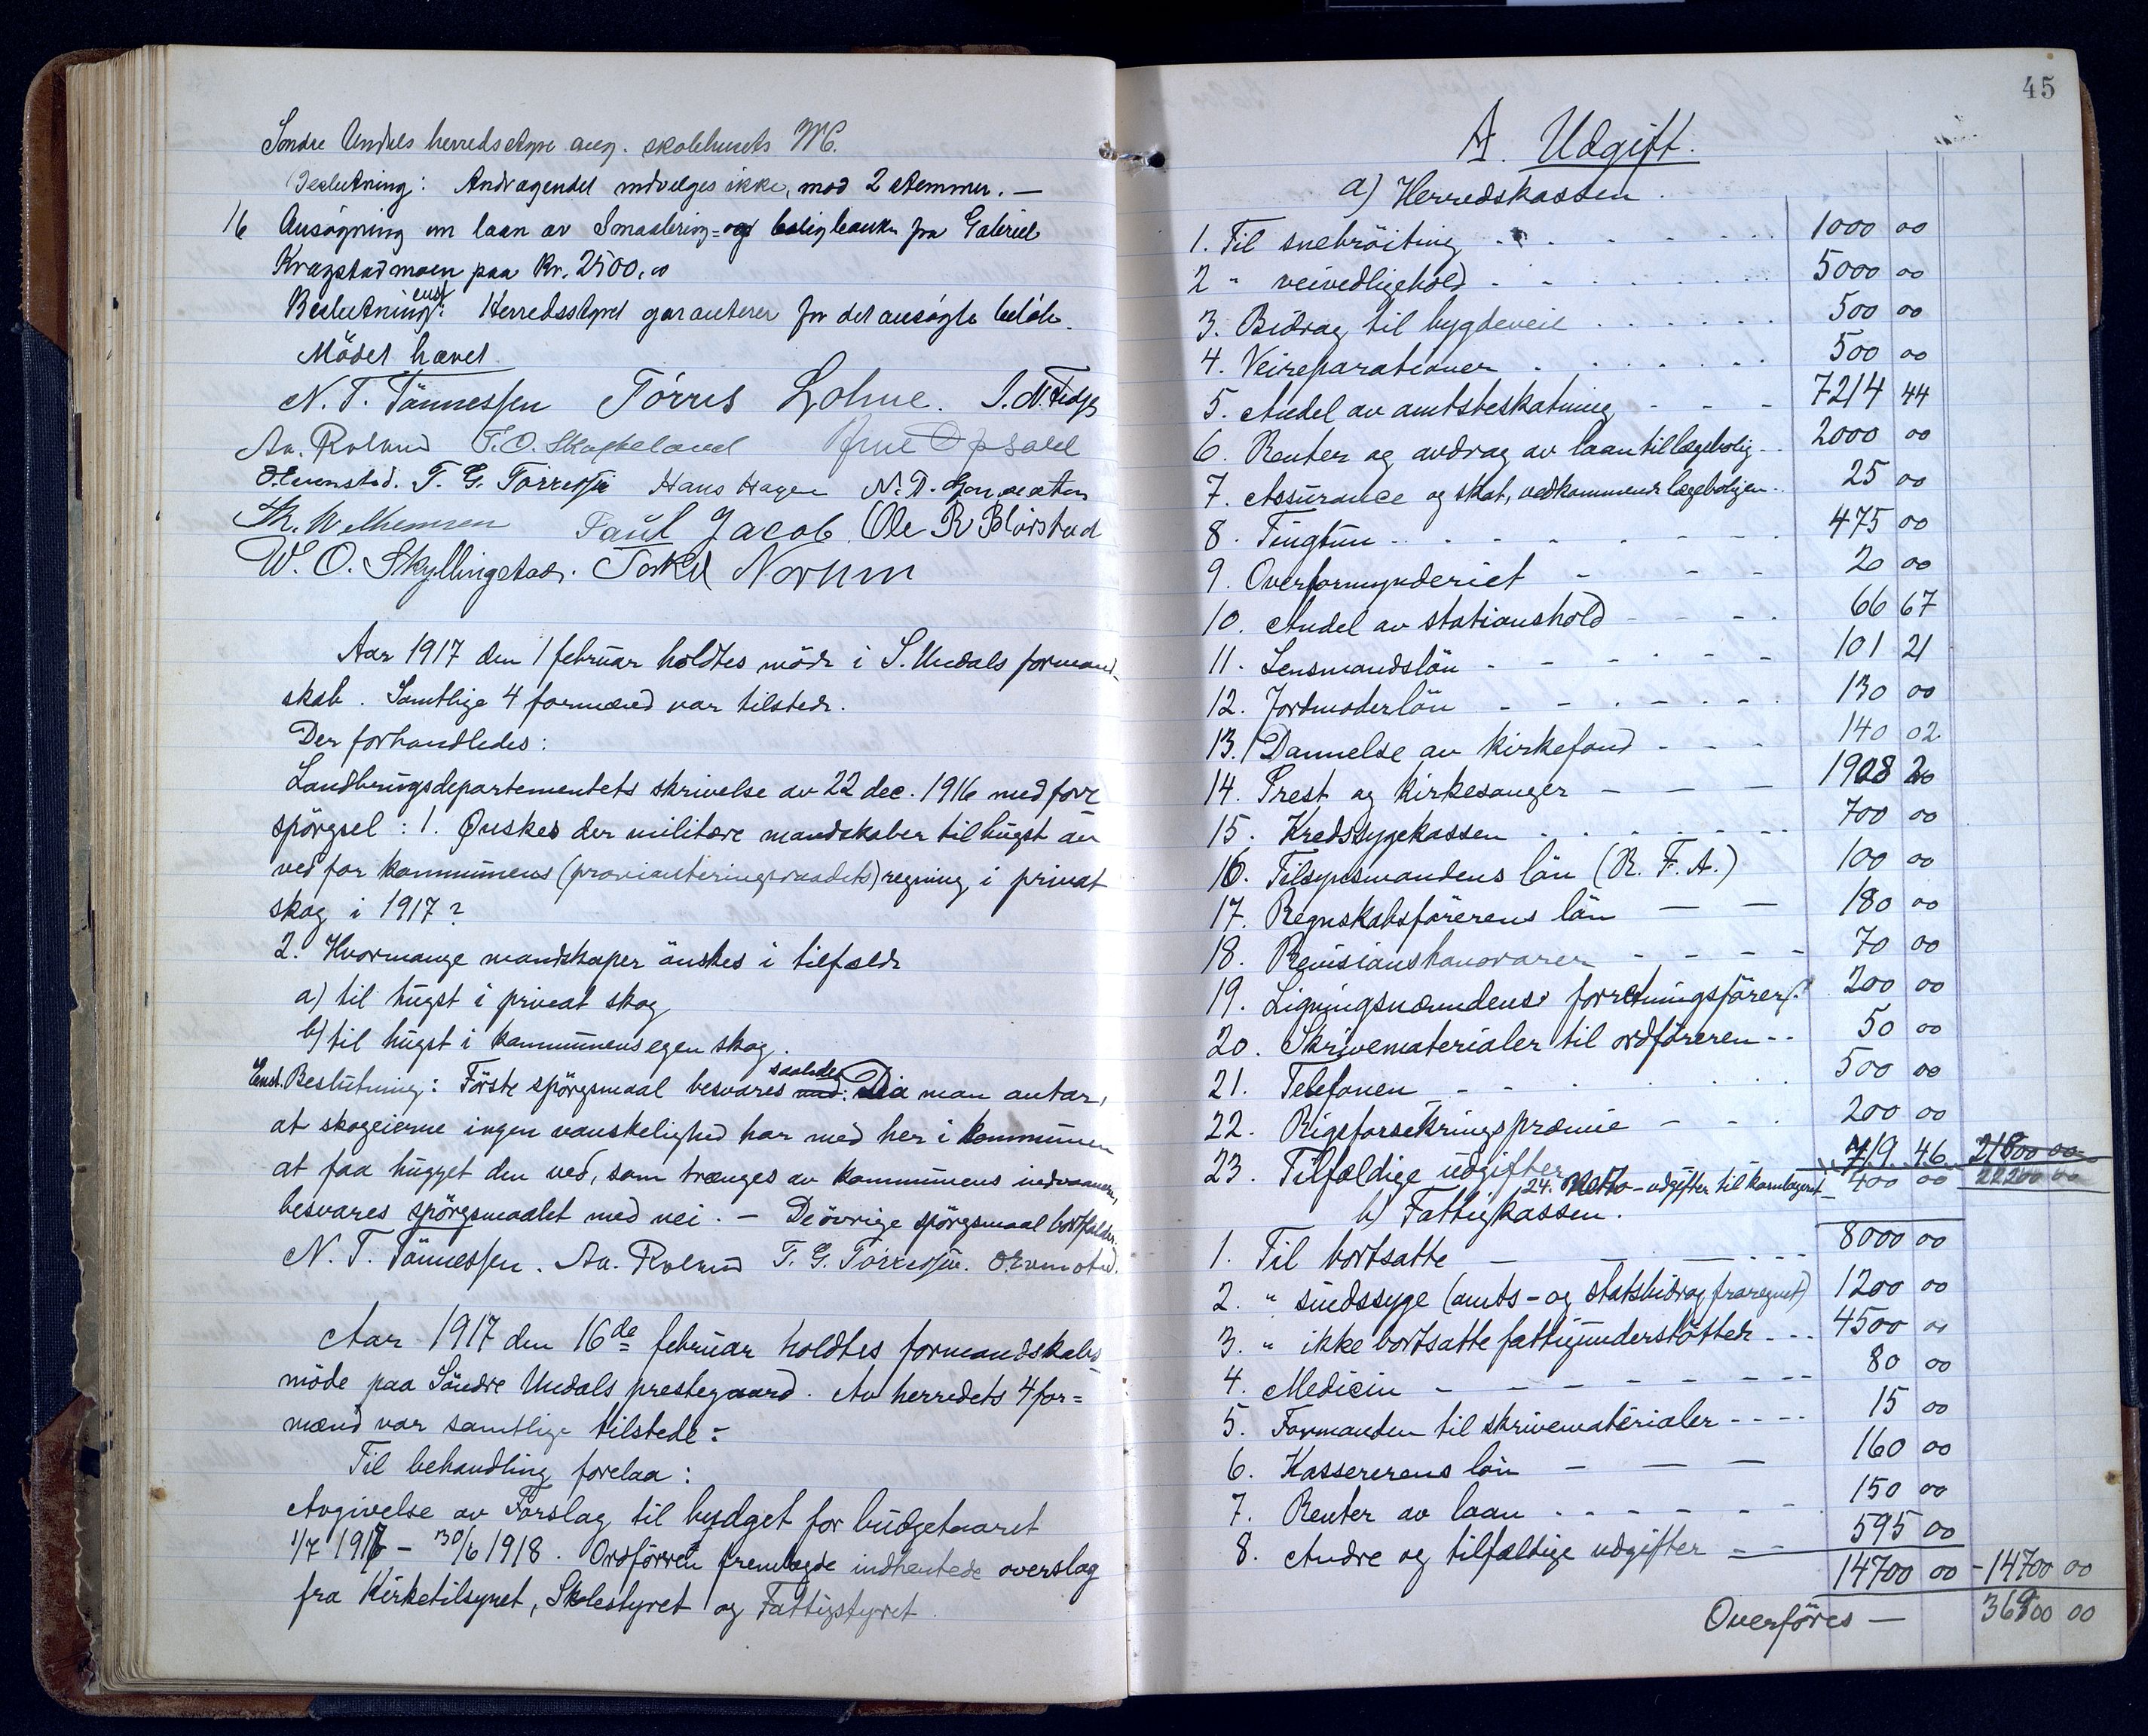 Søndre Undals herredsstyre ang. skolehusets W.C.
Beslutning: Andragendet indvelges ikke, mod 2 stemmer. —
16 Ansøgning om laan av Smaabruk- og boligbanken fra Gabriel
Kragstadmoen paa Kr. 2500,00
Beslutning enst: Herredsstyret garanterer for det ansøgte beløb.
Mödet hævet
N. T. Tönnessen Tórres Lohne. 
Aa. Röiland T. O. Skofteland Opsal
O. Evenstad. T. G. Tórressen Hans Hagen N. D.
Th. Wilhemsen Paul Jacob. Ole R Blörstad
W. O. Skyllingstad. Torkel Norum
Aar 1917 den 1 februar holdtes möde i S. Undals formand-
skab. Samtlige 4 formænd var tilstede.
Der forhandledes:
Landbrugsdepartementets skrivelse av 22 dec. 1916 med fore
spörgsel: 1. Önskes der militære mandskaber til hugst av
ved for kommunens (provianteringsraadets) regning, i privat
skog i 1917?
2. Hvormange mandskaper önskes i tilfælde
a) til hugst i privat skog
b) til hugst i kommunens egen skog.
Enst. Beslutning: Förste spörgsmaal besvares saaledes: Da man antar,
at skogeierne ingen vanskelighed har med her i kommunen
at faa hugget den ved, som trænges av kommunens indvaanere,
besvares spörgsmaalet med nei. — De övrige spörgsmaal bortfalder.
N. T. Tönnessen. Aa. Röiland T. G. Tórressen. O. Evenstad.
Aar 1917 den 16de februar holdtes formandskabs-
möde paa Söndre Undals prestegaard. Av herredets 4 for=
mænd var samtlige tilstede:
Til behandling forelaa:
Avgivelse av Forslag til budget for budgetaaret
1/7 1917 - 30/6 1918. Ordföreren fremlagde indhentede overslag
fra Kirketilsynet, Skolestyret og Fattigstyret.
45
A. Udgift.
a) Herredskassen.
1. Til snebröiting 1000 00
2 " veivedligehold 5000 00
3. Bidrag til bygdeveie 500 00
4. Veireparationer 500 00
5. Andel av amtsbeskatning 7214 44
6. Renter og avdrag av laan til lægebolig 2000 00
7. Assurance og skat, vedkommende lægeboligen 25 00
8. Tingtun 475 00
9. Overformynderiet 20 00
10. Andel av stationshold 66 67
11. Lensmandslön 101 21
12. Jordmoderlön 130 00
13. Dannelse av kirkefond 140 02
14. Prest og kirkesanger 1908 20
15. Kredssygekassen 700 00
16. Tilsynsmandens lön (R. F. A.) 100 00
17. Regnskabsförerens lön 180 00
18. Revisionshonorarer 70 00
19. Ligningsnævndens forretningsförer 200 00
20. Skrivematerialer til ordföreren 50 00
21. Telefonen 500 00
22. Rigsforsikringspræmie 200 00
23. Tilfældige udgifter 719 46 21800 00
24. Netto-udgifter til kornlageret 400 00 22200 00
b) Fattigkassen.
1. Til bortsatte 8000 00
2. " sindssyge (amts- og statsbidrag fraregnet) 1200 00
3. " ikke bortsatte fattigunderstöttede 4500 00
4. Medicin 80 00
5. Formanden til skrivematerialer 15 00
6. Kassererens lön 160 00
7. Renter av laan 150 00
8. Andre og tilfældige udgifter 595 00
14700 00 - 14700 00
Overföres — 36900 00